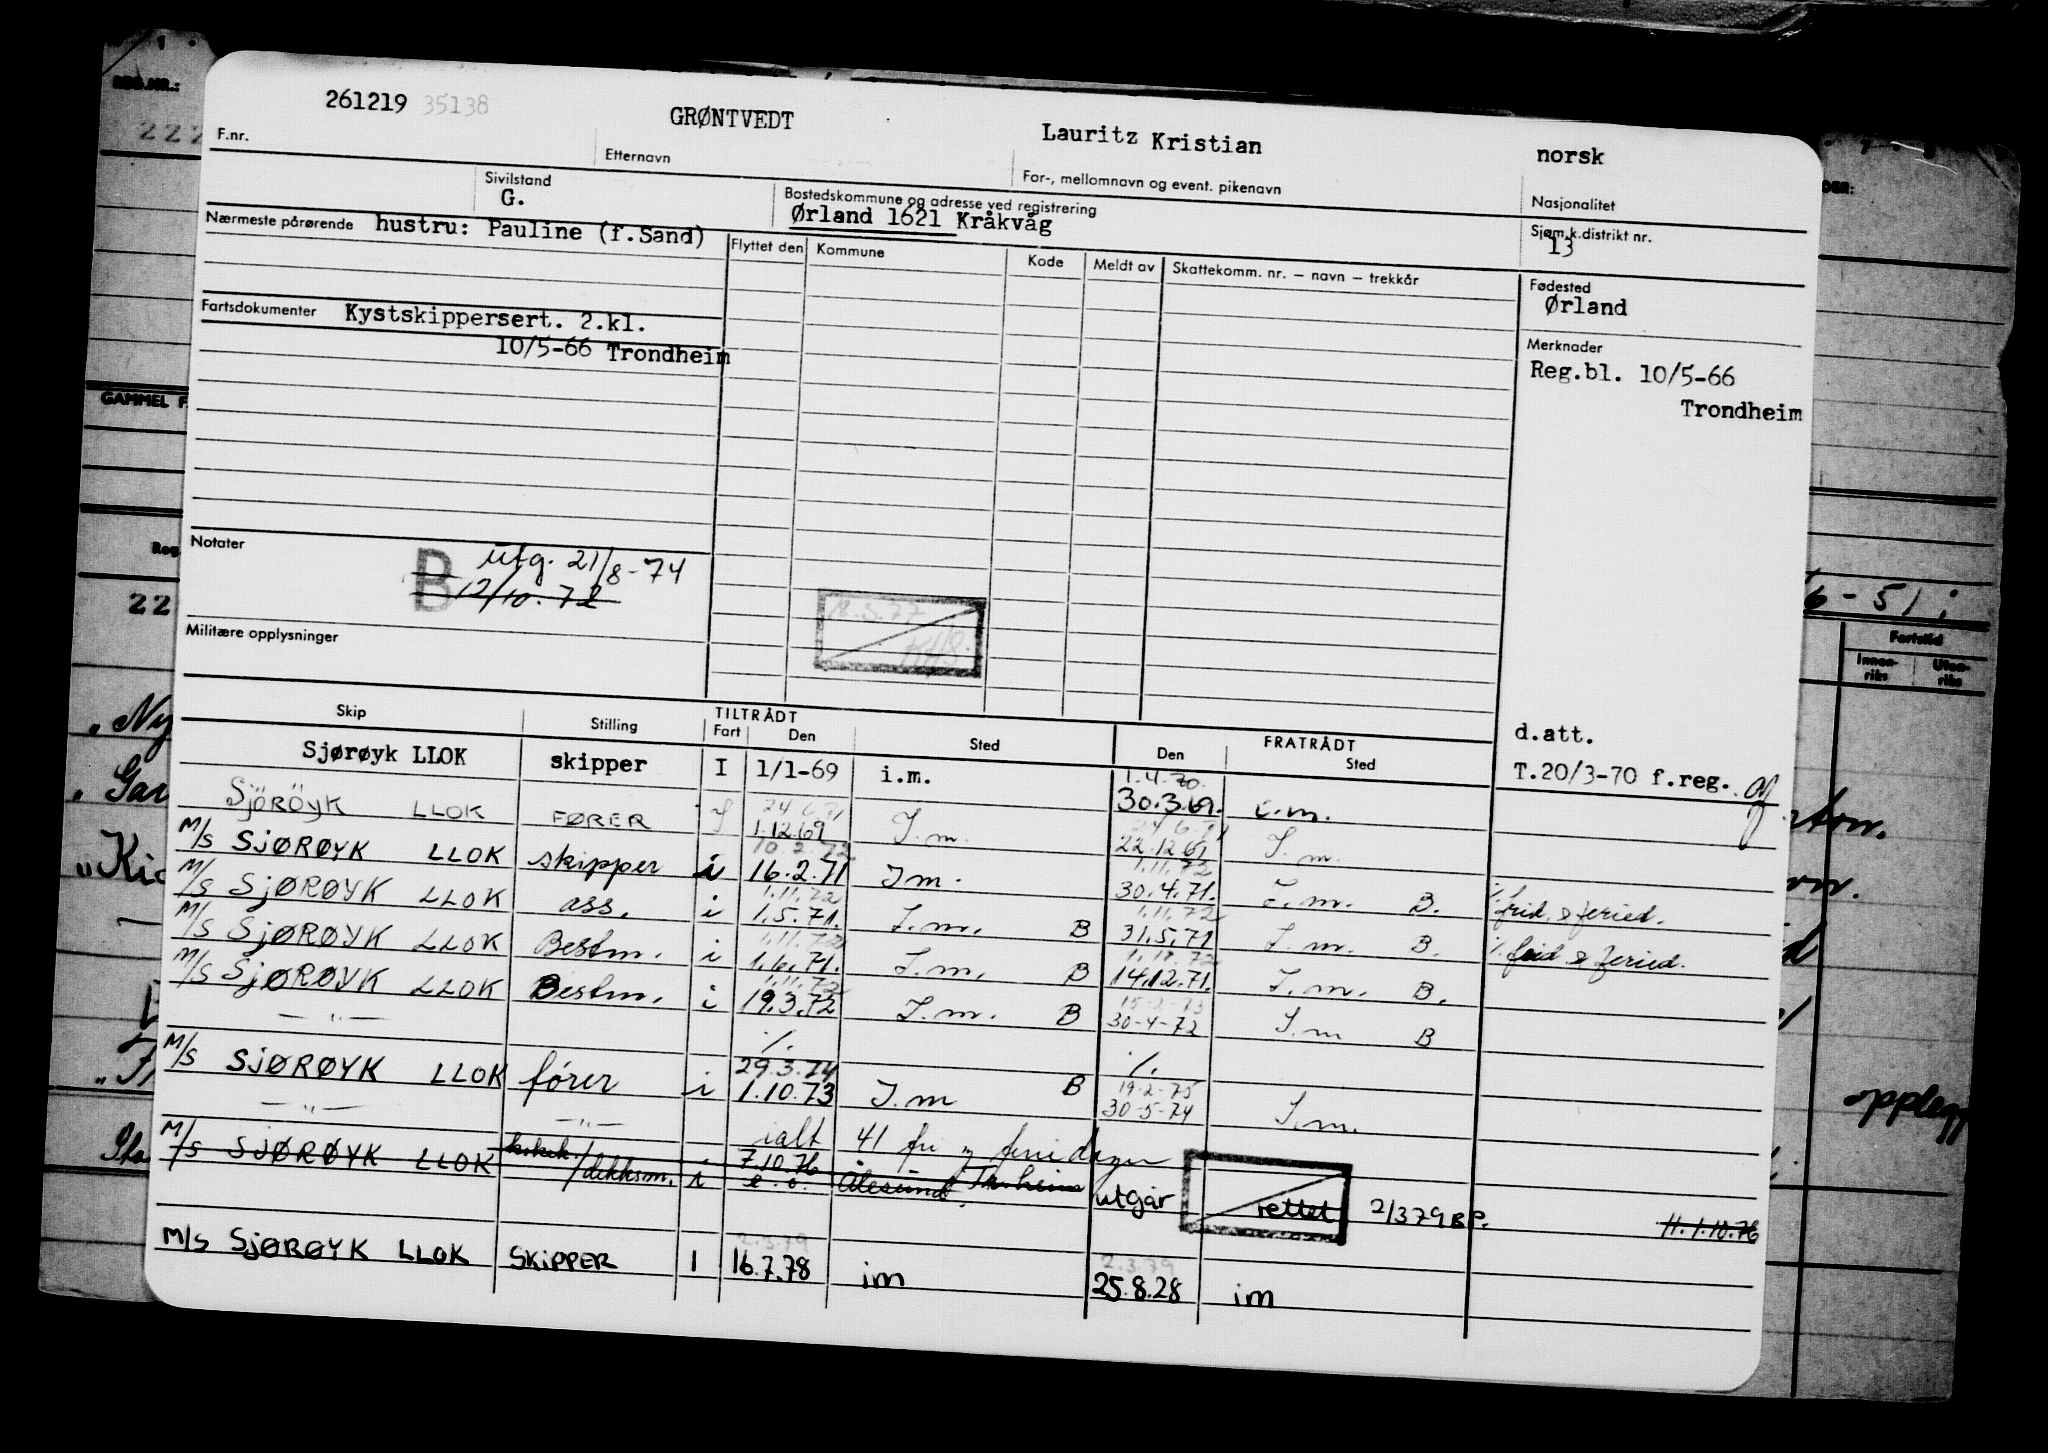 261219 35138 GRØNTVEDT Lauritz Kristian norsk
F.nr. Etternavn For-, mellomnavn og event. pikenavn Nasjonalitet
Sivilstand Bostedskommune og adresse ved registrering Sjøm.k.distrikt nr.
G. Ørland 1621 Kråkvåg 13
Nærmeste pårørende hustru: Pauline (f.Sand)
Flyttet den Kommune Kode Meldt av Skattekomm. nr. – navn – trekkår
Fødested
Ørland
Fartsdokumenter Kystskippersert. 2.kl.
10/5-66 Trondheim
Merknader
Reg.bl. 10/5-66
Trondheim
Notater
B utg. 21/8-74
12/10.72
18.5.77
Militære opplysninger
d.att.
T.20/3-70 f.reg.
Skip Stilling TILTRÅDT FRATRÅDT
Fart Den Sted Den Sted
Sjørøyk LLOK skipper I 1/1-69 i.m. 1.4.70. 30.3.69. i.m.
SJÖRÖYK LLOK FØRER I 24.6.71 1.12.69 I.m. 24.6.71 22.12.69 I.m.
M/S SJØRØYK LLOK skipper i 10.2.72 16.2.71 I m. 1.11.72 30.4.71. I.m. B. % frid. & feried.
M/S SJØRØYK LLOK ass. i 1.11.72 1.5.71. I.m. B 1.11.72 31.5.71 I.m. B. % frid & feried.
M/S SJØRØYK LLOK Bestm. i 1.11.72 1.6.71. I.m. B 1.11.72 14.12.71. I.m. B.
M/S SJØRØYK LLOK Bestm. i 1.11.72 19.3.72 I.m. B 15-2-73 30-4-72 I.m B
— " — %. %.
M/S SJØRØYK LLOK fører i 29.3.74 1.10.73 I.m B 19-2-75 30-5-74 I.m.
— " — — " — ialt 41 fri og feriedager
M/S SJØRØYK LLOK kokk/dekksm. i 7.10.76 e.o. Ålesund Tr.heim utgår rettet 2/379 BP. 11.1.10.76
M/S SJØRØYK LLOK SKIPPER I 2.3.79 16.7.78 im 2.3.79 25.8.28 im
REG.NR.:
222
GAMMEL F.
Reg.
22
"Ny
"Gar
"Kic
6-51 i
Fartstid
Innen-riks Uten-riks
opplegg